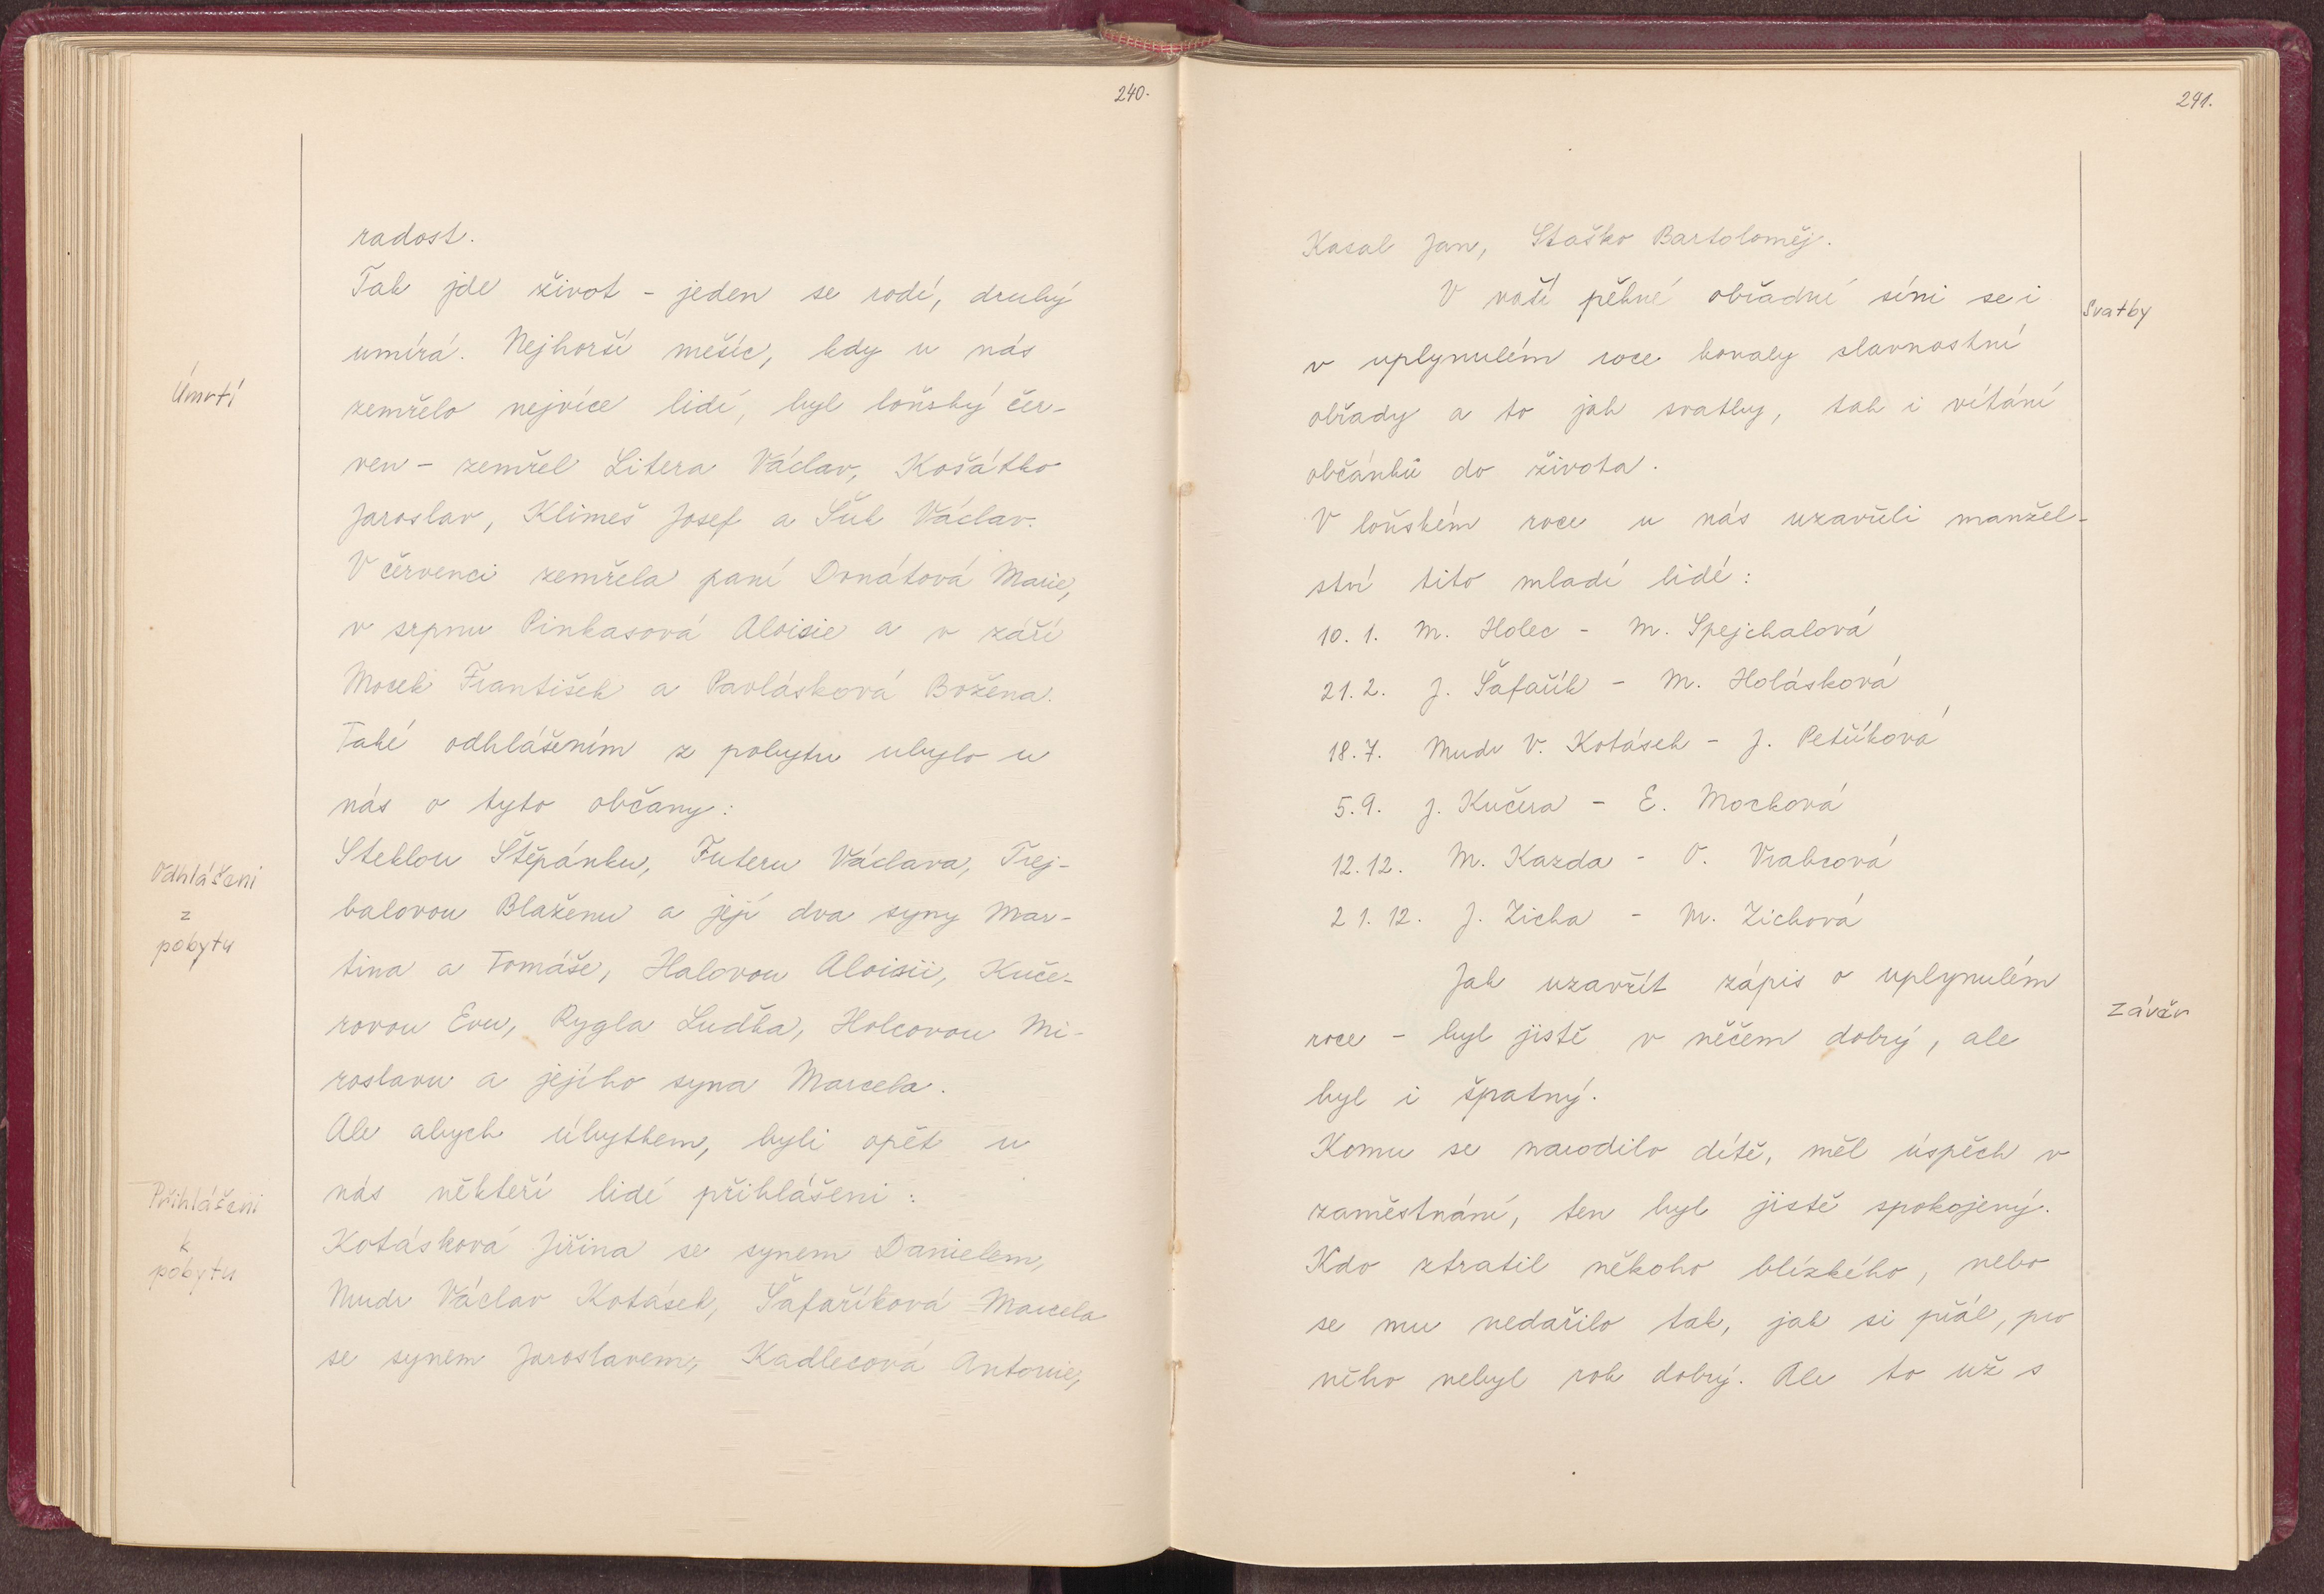 240.
radost.
Tak jde život - jeden se rodí, druhý
umírá. Nejhorší mešíc, kdy u nás
Úmrtí
zemřelo nejvíce lidí, byl loňský čer-
ven - zemřel Litera Václav, Košátko
Jaroslav, Klimeš Josef a Šuk Václav.
V červenci zemřela paní Donátová Marie,
v srpnu Pinkasová Aloisie a v září
Mocek František a Pavlásková Božena.
Také odhlášením z pobytu ubylo u
nás o tyto občany:
Steklou Štěpánku, Futeru Václava, Trej-
Odhlášeni
z
pobytu
balovou Blaženu a její dva syny Mar-
tina a Tomáše, Halovou Aloisii, Kuče-
rovou Evu, Rygla Luďka, Holcovou Mi-
roslavu a jejího syna Marcela.
Ale abych úbytkem, byli opět u
Přihlášeni
k
pobytu
nás někteří lidé přihlášeni:
Kotásková Jiřina se synem Danielem,
Mudr Václav Kotásek, Šafaříková Marcela
se synem Jaroslavem, Kadlecová Antonie,
241.
Kasal Jan, Staško Bartoloměj.
V naší pěkné obřadní síni se i
Svatby
v uplynulém roce konaly slavnostní
obřady a to jak svatby, tak i vítání
občánků do života.
V loňském roce u nás uzavřeli manžel-
ství tito mladí lidé:
10. 1. M. Holec - M. Spejchalová
21. 2. J. Šafařík - M. Holásková
18. 7. Mudr V. Kotásek - J. Petříková
5. 9. J. Kučera - E. Mocková
12. 12. M. Kazda - O. Vrabcová
21. 12. J. Zicha - M. Zichová
Jak uzavřít zápis o uplynulém
Závěr
roce - byl jistě v něčem dobrý, ale
byl i špatný.
Komu se narodilo dítě, měl úspěch v
zaměstnání, ten byl jistě spokojený.
Kdo ztratil někoho blízkého, nebo
se mu nedařilo tak, jak si přál, pro
něho nebyl rok dobrý. Ale to už s